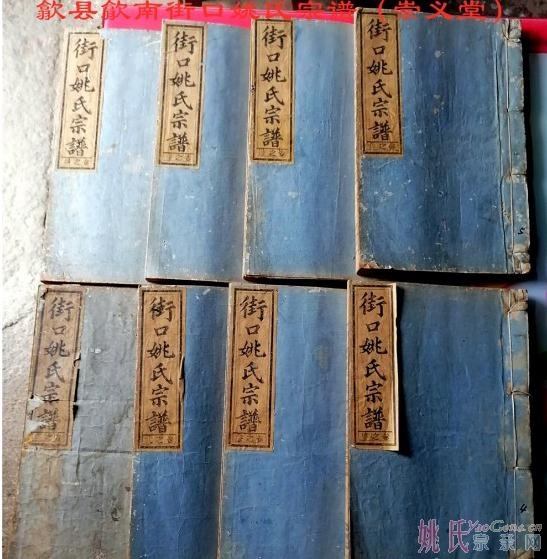 歙县歙南街口姚氏宗谱（崇义堂）
街口姚氏宗譜
街口姚氏宗譜
街口姚氏宗譜
街口姚氏宗譜
街口姚氏宗譜
街口姚氏宗譜
街口姚氏宗譜
街口姚氏宗譜
5
4
姚氏宗亲网
YaoGens.cn